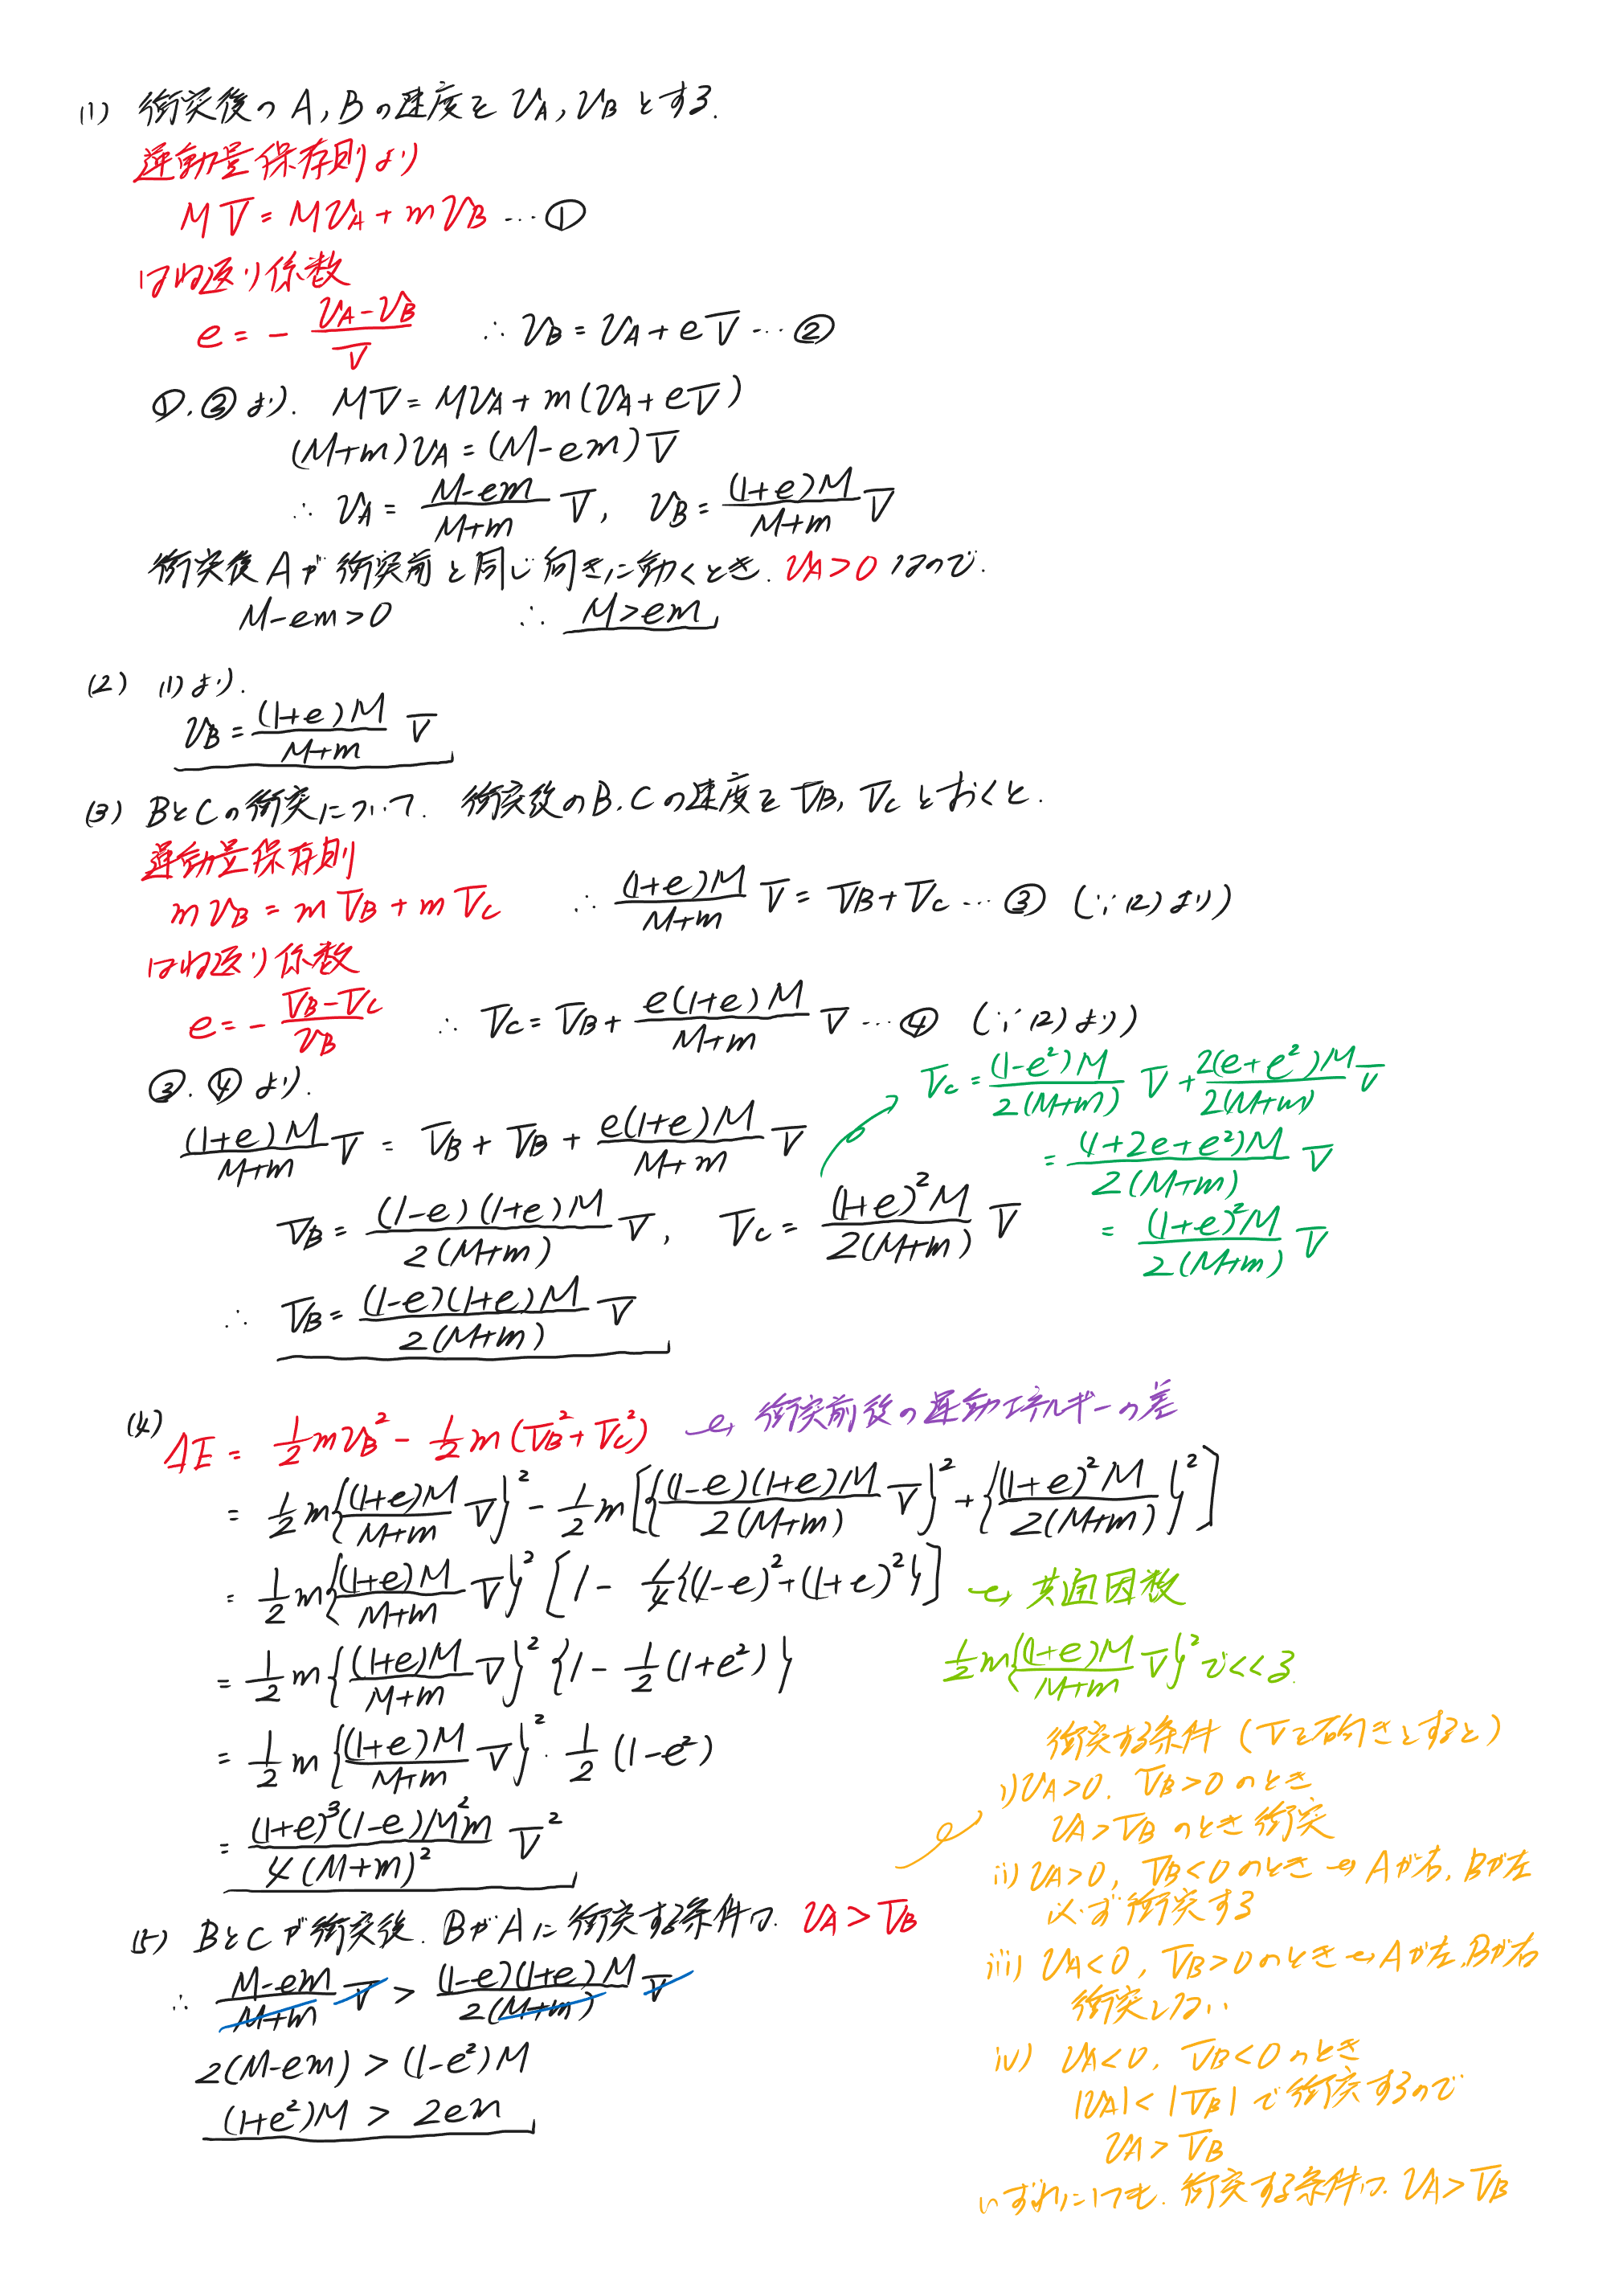 (1) 衝突後の A, B の速度を v_A, v_B とする.
運動量保存則より
MV = Mv_A + mv_B …①
はね返り係数
e = - (v_A - v_B)/V ∴ v_B = v_A + eV …②
①, ②より. MV = Mv_A + m(v_A + eV)
(M+m)v_A = (M-em)V
∴ v_A = (M-em)/(M+m) V, v_B = (1+e)M/(M+m) V
衝突後 A が 衝突前と同じ向きに動くとき. v_A > 0 なので.
M-em>0 ∴ M>em
(2) (1)より.
v_B = (1+e)M/(M+m) V
(3) BとCの衝突について. 衝突後のB, Cの速度を V_B, V_C とおくと.
運動量保存則
mv_B = mV_B + mV_C ∴ (1+e)M/(M+m) V = V_B + V_C …③ (∵(2)より)
はね返り係数
e = - (V_B - V_C)/v_B ∴ V_C = V_B + e(1+e)M/(M+m) V …④ (∵(2)より)
③, ④より.
(1+e)M/(M+m) V = V_B + V_B + e(1+e)M/(M+m) V
V_B = (1-e)(1+e)M/2(M+m) V, V_C = (1+e)²M/2(M+m) V
V_C = (1-e²)M/2(M+m) V + 2(e+e²)M/2(M+m) V
= (1+2e+e²)M/2(M+m) V
= (1+e)²M/2(M+m) V
∴ V_B = (1-e)(1+e)M/2(M+m) V
(4) ΔE = 1/2 mv_B² - 1/2 m(V_B² + V_C²) 衝突前後の運動エネルギーの差
= 1/2 m{(1+e)M/(M+m) V}² - 1/2 m[{(1-e)(1+e)M/2(M+m) V}² + {(1+e)²M/2(M+m)}²]
= 1/2 m{(1+e)M/(M+m) V}² [1 - 1/4{(1-e)²+(1+e)²}] 共通因数
1/2 m{(1+e)M/(M+m) V}² でくくる.
= 1/2 m{(1+e)M/(M+m) V}² {1 - 1/2(1+e²)}
= 1/2 m{(1+e)M/(M+m) V}² · 1/2 (1-e²)
= (1+e)³(1-e)M²m/4(M+m)² V²
(5) BとCが衝突後. BがAに衝突する条件は. v_A > V_B
∴ (M-em)/(M+m) V > (1-e)(1+e)M/2(M+m) V
2(M-em) > (1-e²)M
(1+e²)M > 2em
衝突する条件 (Vを右向きとすると)
i) v_A>0. V_B>0 のとき
v_A>V_B のとき 衝突
ii) v_A>0, V_B<0 のとき Aが右, Bが左
必ず衝突する
iii) v_A<0, V_B>0のとき Aが左, Bが右
衝突しない
iv) v_A<0, V_B<0 のとき
|v_A|<|V_B| で衝突するので
v_A > V_B
いずれにしても. 衝突する条件は. v_A>V_B